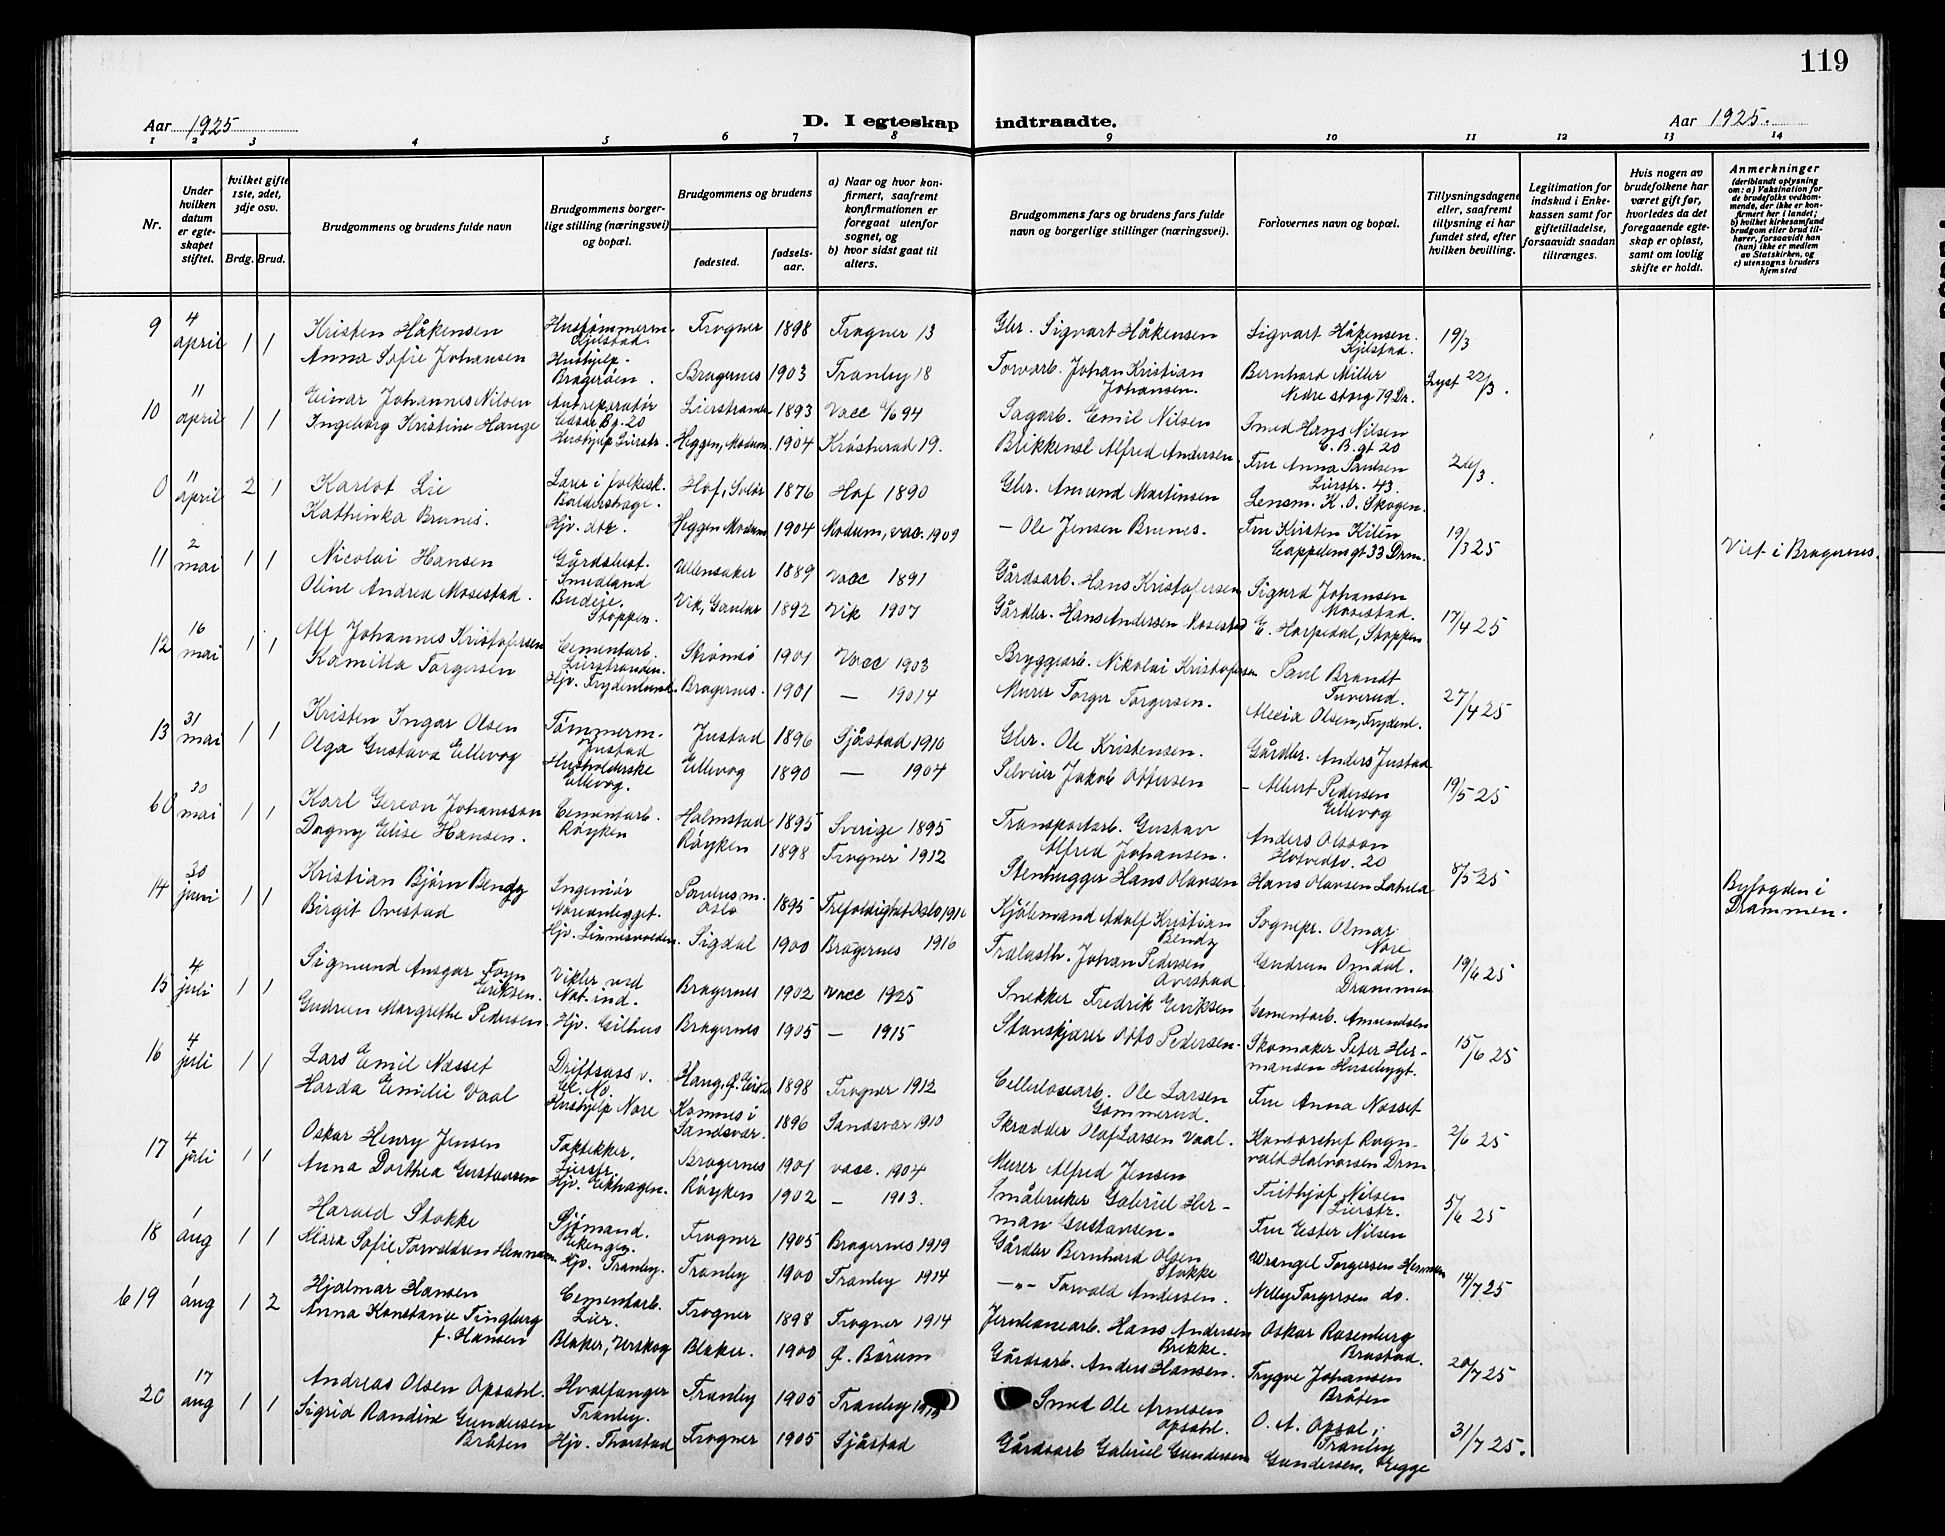 119
Aar 1925
D. I egteskap indtraadte.
Aar 1925.
1 2 3 4 5 6 7 8 9 10 11 12 13 14
Nr.
Under hvilken datum er egteskapet stiftet.
hvilket gifte 1ste, 2det, 3dje osv.
Brdg. Brud.
Brudgommens og brudens fulde navn
Brudgommens borgerlige stilling (næringsvei) og bopæl.
Brudgommens og brudens
fødested.
fødselsaar.
a) Naar og hvor konfirmert, saafremt konfirmationen er foregaat utenfor sognet, og
b) hvor sidst gaat til alters.
Brudgommens fars og brudens fars fulde navn og borgerlige stillinger (næringsvei).
Forlovernes navn og bopæl.
Tillysningsdagene eller, saafremt tillysning ei har fundet sted, efter hvilken bevilling.
Legitimation for indskud i Enkekassen samt for giftetilladelse, forsaavidt saadan tiltrænges.
Hvis nogen av brudefolkene har været gift før, hvorledes da det foregaaende egteskap er opløst, samt om lovlig skifte er holdt.
Anmerkninger
(deriblandt oplysning om: a) Vaksination for de brudefolks vedkommende, der ikke er konfirmert her i landet; b) hvilket kirkesamfund brudgom eller brud tilhører, forsaavidt han (hun) ikke er medlem av Statskirken, og c) utensogns bruders hjemsted
9 4 april 1 1 Kristen Håkensen Hustømmerm. Kjilstad. Frogner 1898 Frogner 13 Gbr. Sigvart Håkensen Sigvart Håkensen. Kjilstad. 19/3
Anna Sofie Johansen Hushjelp. Bragerøen. Bragernes 1903 Tranby 18 Torvarb. Johan Kristian Johansen. Bernhard Miller Nedre storg 19 Dr. Lyst 22/3.
10 11 april 1 1 Einar Johannes Nilsen Autreparatør Lierstranden 1893 Vacc 94 Sagarb. Emil Nilsen Smed Hans Nilsen C. B. gt 20
Ingeborg Kristine Hange Hushjelp Lierstr. Heggen, Modum. 1904 Krøsherad 19. Blikkensl Alfred Andersen Fru Anna Paulsen Lierstr. 43. 26/3
0 11 april 2 1 Karlot Lie Lærer i folkesk. Baldershage. Hof, Solør 1876 Hof 1890 Gbr. Amund Martinsen Lensm. K. O. Skogen.
Kathinka Brunes. Hjv. Heggen Modum 1904 Modum, vac. 1909 — Ole Jensen Brunes. Fru Kristen Kilen Cappelensgt 33 Drm. 19/3 25
11 2 mai 1 1 Nicolai Hansen Gårdsbest. Smedland Ullensaker 1889 Vacc 1891 Gårdsarb. Hans Kristofersen Sigurd Johansen Mosestad. Viet i Bragernes.
Oline Andrea Mosestad. Budeje. Stoppen. Vik, Gaular 1892 Vik 1907 Gårdbr. Hans Andersen Mosestad E. Horpedal, Stoppen 17/4 25
12 16 mai 1 1 Alf Johannes Kristofersen Cementarb. Lierstranden. Strømsø 1901 Vacc 1903 Bryggearb. Nikolai Kristofersen Paul Brandt Tuverud.
Kamilla Torgersen Hjv. Frydenlund. Bragernes. 1901 — 19014 Murer Torger Torgersen. Alecia Olsen, Frydenl. 27/4 25
13 31 mai 1 1 Kristen Ingar Olsen Tømmerm. Justad Justad 1896 Sjåstad 1910 Gbr. Ole Kristensen. Gårdbr. Anders Justad
Olga Gustava Ellevog Husholderske Ellevog. Ellevog 1890 — 1904 Selveier Jakob Ottersen - Albert Pedersen Ellevog 19/5 25
60 30 mai 1 1 Karl Gereon Johansson Cementarb. Røyken Halmstad 1895 Sverige 1895 Transportarb. Gustav Alfred Johansen. Anders Olsson Hotvedtv. 20
Dagny Elise Hansen. Røyken 1898 Frogner 1912 Stenhugger Hans Olavsen Hans Olavsen Lahela 8/5 25
14 30 juni 1 1 Kristian Bjørn Bendz Ingeniør Noreanlegget. Paulus m. Oslo 1895 Trefoldighet Oslo 1910 Kjøbmand Adolf Kristian Bendz Sognepr. Olmar Nore Byfogden i Drammen.
Birgit Ovestad Hjv. Linnesvolden. Sigdal 1900 Bragernes 1916 Trælasth. Johan Pedersen Ovestad Gudrun Omdal. Drammen 19/6 25
15 4 juli 1 1 Sigmund Ansgar Foyn Eriksen. Vikler ved Nat. ind. Bragernes 1902 Vacc 1925 Snekker Fredrik Eeriksen Cementarb. Amundsen
Gudrun Margrethe Pedersen. Hjv. Gilhus Bragernes 1905 — 1915 Stavskjærer Otto Pedersen. Skomaker Peter Hermansen Husebygt. 15/6 25
16 4 juli 1 1 Lars Emil Næsset Driftsass v. Haug, Ø. Eiker 1898 Frogner 1912 Cellulosearb. Ole Larsen Gommerud. Fru Anna Næsset
Harda Emilie Vaal Hushjelp Nore Komnes i Sandsvær. 1896 Sandsvær 1910 Skrædder Olaf Larsen Vaal. Kontorchef Ragnvald Halvorsen Drm. 2/6 25
17 4 juli 1 1 Oskar Henry Jensen Taktekker. Lierstr. Bragernes 1901 vacc. 1904 Murer Alfred Jensen Frithjof Nilsen Lierstr.
Anna Dorthea Gustavsen Hjv. Ekhagen. Røyken 1902 — 1903. Småbruker Gabriel Herman Gustavsen. Fru Ester Nilsen 5/6 25
18 1 aug 1 1 Harald Stokke Sjømand. Frogner 1905 Bragernes 1919 Gårdbr Bernhard Olsen Stokke Wrangel Torgersen Hennum
Klara Sofie Torvaldsen Hennum Hjv. Tranby. Tranby 1900 Tranby 1914 —"— Torvald Andersen. Nelly Torgersen do. 14/7 25
619 1 aug 1 2 Hjalmar Hansen Cementarb. Lier. Frogner 1898 Frogner 1914 Jernbanearb. Hans Andersen Brekke. Oskar Rosenberg Brastad.
Anna Konstanse Tingberg f. Hansen Blaker, Urskog Blaker. 1900 Ø. Bærum Gårdsarb. Anders Hansen. Trygve Johansen Bråten 20/7 25
20 17 aug 1 1 Andreas Olsen Opsahl. Hvalfanger Tranby. Tranby 1905 Tranby Smed Ole Arnesen Opsahl. O. A. Opsal i Tranby
Sigrid Randine Gundersen Bråten Hjv. Thorstad Frogner 1905 Sjåstad Gårdsarb Gabriel Gundersen Gundersen, Egge 31/7 25.